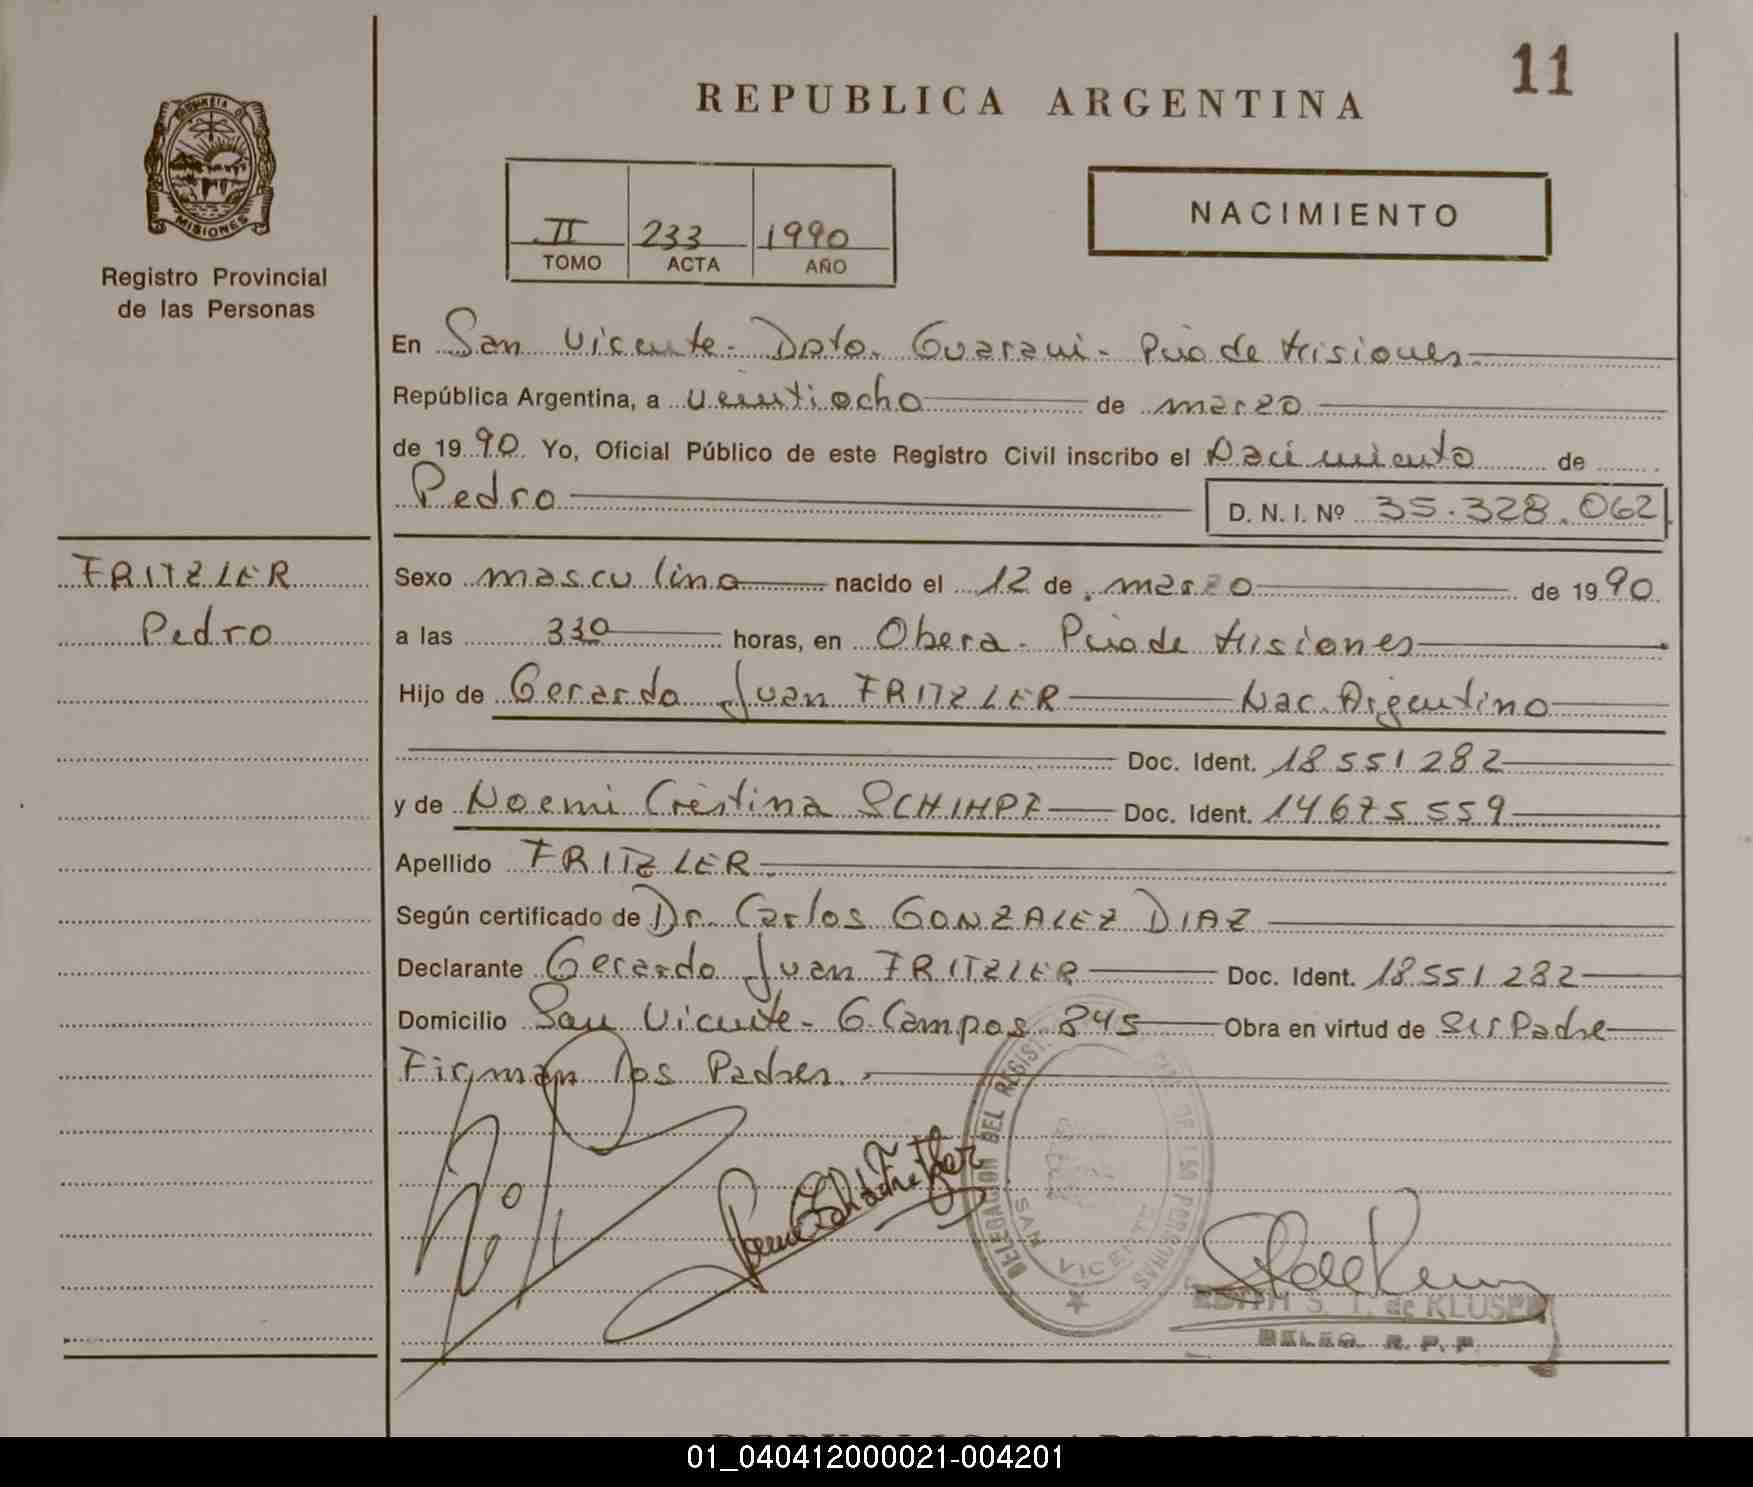 11
REPUBLICA ARGENTINA
PROVINCIA DE
MISIONES
Registro Provincial
de las Personas
II 233 1990
TOMO ACTA AÑO
NACIMIENTO
En San Vicente - Dpto. Guarani - Pcia de Misiones
República Argentina, a veintiocho de marzo
de 1990 Yo, Oficial Público de este Registro Civil inscribo el Nacimiento de
Pedro D. N. I. Nº 35.328.062
FRITZLER
Pedro
Sexo masculino nacido el 12 de marzo de 1990
a las 330 horas, en Obera - Pcia de Misiones
Hijo de Gerardo Juan FRITZLER Nac. Argentino
Doc. Ident. 18 551 282
y de Noemi Cristina SCHIMPF Doc. Ident. 14 675 559
Apellido FRITZLER.
Según certificado de Dr. Carlos GONZALEZ DIAZ
Declarante Gerardo Juan FRITZLER Doc. Ident. 18 551 282
Domicilio San Vicente - G. Campos 845 Obra en virtud de ser Padre
Firman los Padres.
DELEGACION DEL REGIST DE LAS PERSONAS
SAN VICENTE
EDITH S. T. de KLUSE
DELEG. R. P. P.
01_040412000021-004201